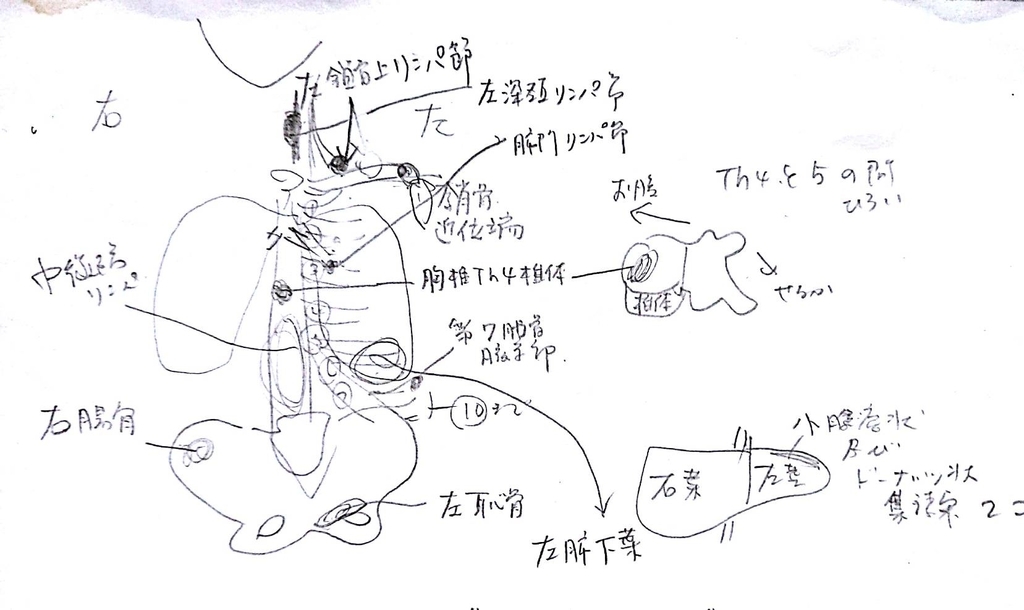 左鎖骨上リンパ節
右
左
左深頚リンパ節
肺門リンパ節
左肩骨
近位端
Th4と5の所
ひろい
お腹
せなか
椎体
胸椎Th4椎体
リンパ
第7肋骨
10まで
右腸骨
左恥骨
左肺下葉
右葉
左葉
小腫瘤状
及び
ドーナッツ状
集積 2コ